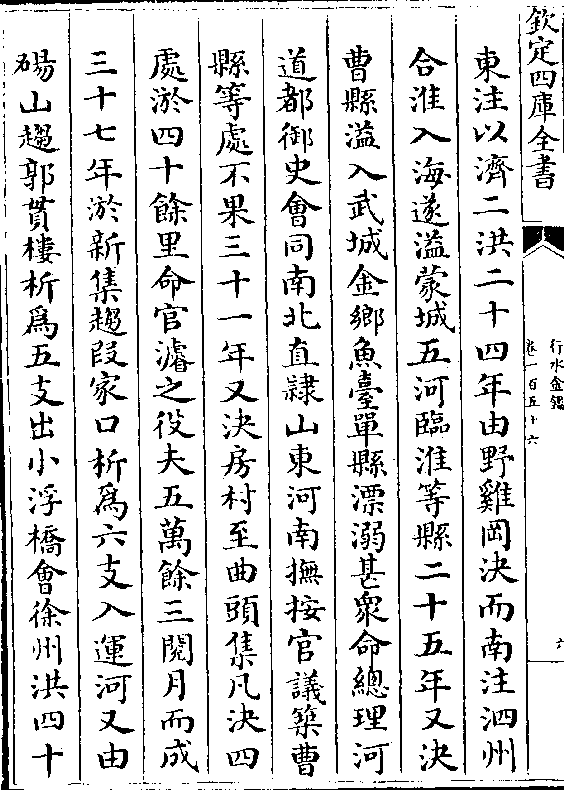 欽定四庫全書
行水金鑑
卷一百五十六
六
東注以濟二洪二十四年由野雞岡決而南注泗州
合淮入海遂溢蒙城五河臨淮等縣二十五年又決
曹縣溢入武城金鄉魚臺單縣漂溺甚衆命總理河
道都御史會同南北直隸山東河南撫按官議築曹
縣等處不果三十一年又決房村至曲頭集凡決四
處淤四十餘里命官濬之役夫五萬餘三閱月而成
三十七年淤新集趨段家口析爲六支入運河又由
碭山趨郭貫樓析爲五支出小浮橋會徐州洪四十